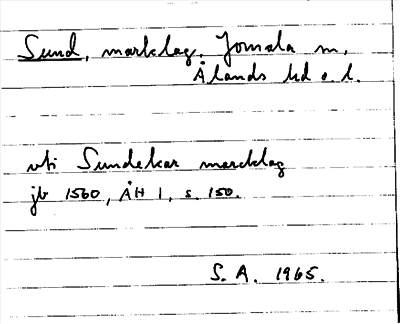 Sund, marklag. Jomala sn,
Ålands hd o. l.
vti Sundekar marcklag
jb 1560, ÅH 1, s. 150.
S. A. 1965.